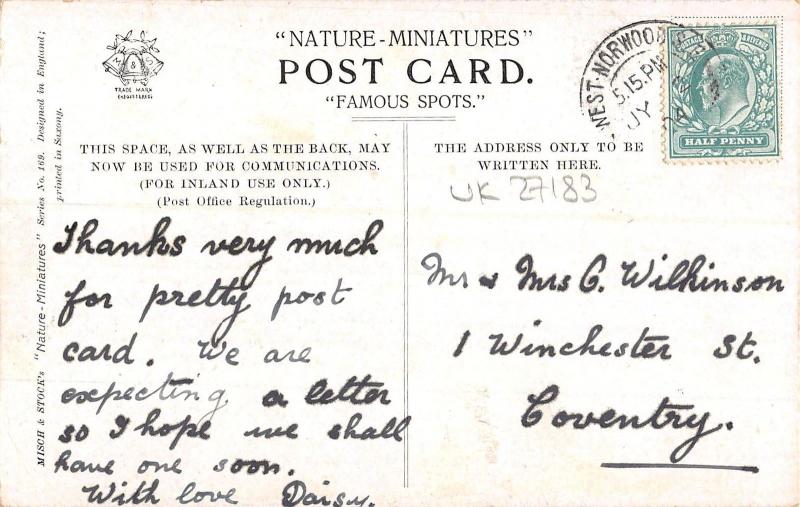 "NATURE-MINIATURES"
POST CARD.
"FAMOUS SPOTS."
M & S
TRADE MARK
(REGISTERED)
WEST-NORWOOD
5.15.PM
JY
04
POSTAGE & REVENUE
HALF PENNY
THIS SPACE, AS WELL AS THE BACK, MAY
NOW BE USED FOR COMMUNICATIONS.
(FOR INLAND USE ONLY.)
(Post Office Regulation.)
THE ADDRESS ONLY TO BE
WRITTEN HERE.
UK 27183
MISCH & STOCK'S "Nature-Miniatures" Series No. 169. Designed in England;
printed in Saxony.
Thanks very much
for pretty post
card. We are
expecting a letter
so I hope we shall
have one soon.
With love Daisy.
Mr & Mrs G. Wilkinson
1 Winchester St.
Coventry.